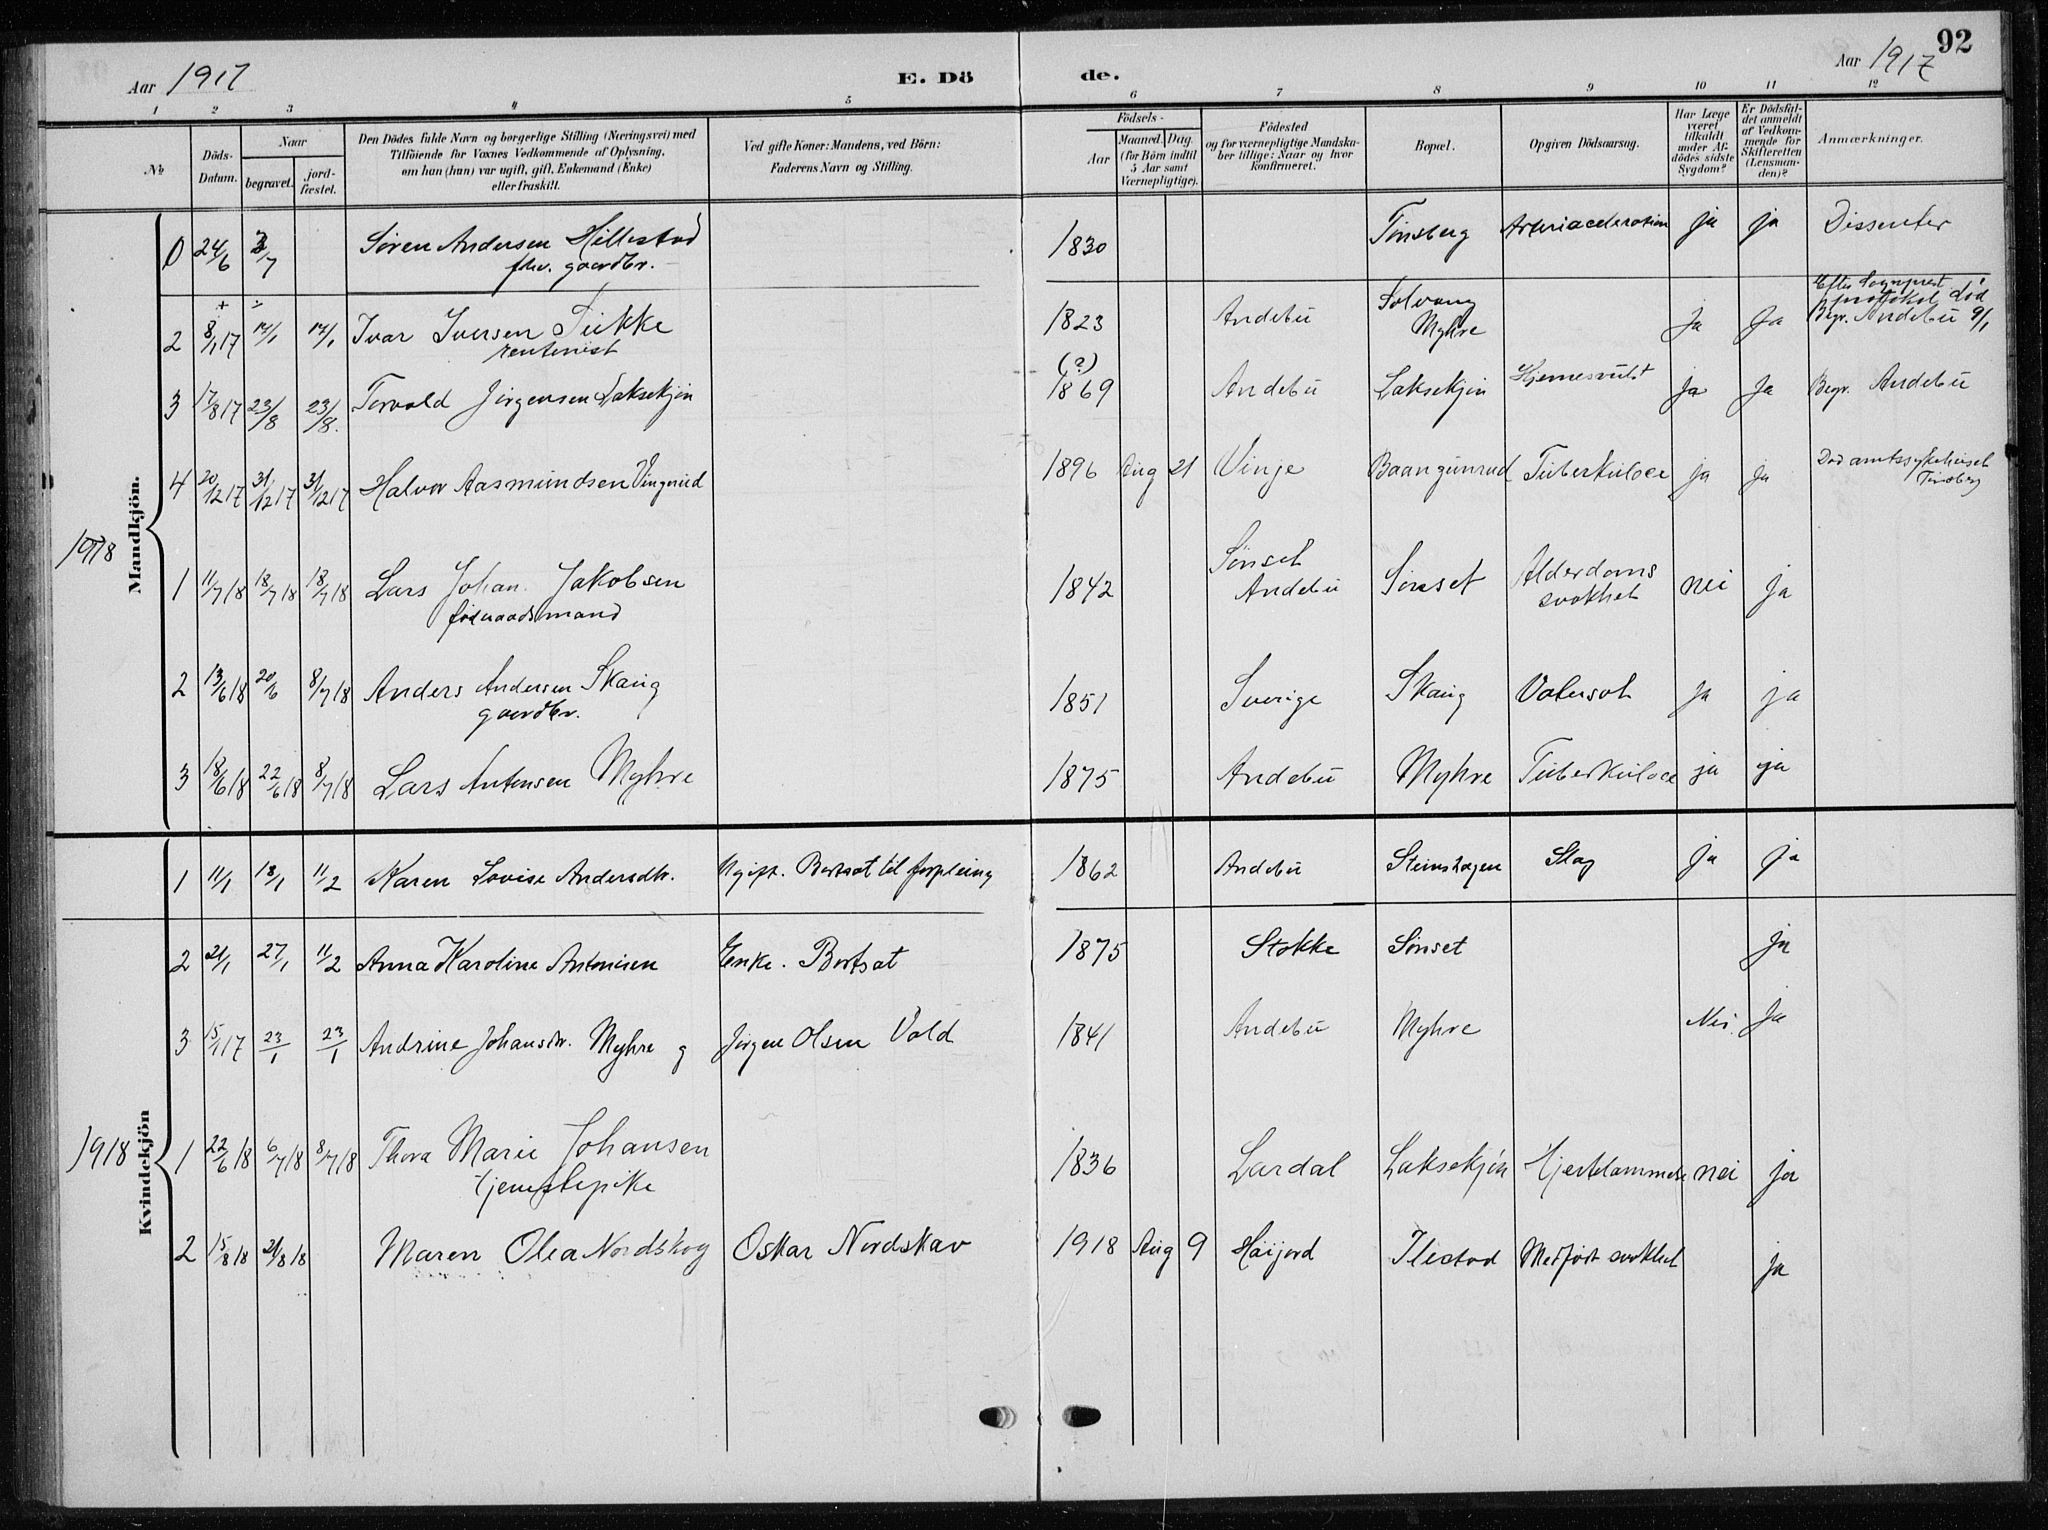 Aar 1917 E. Dö de. Aar 1917 92
1 2 3 4 5 6 7 8 9 10 11 12
No
Döds-Datum.
Naar
begravet.
jord-fæstet.
Den Dödes fulde Navn og borgerlige Stilling (Næringsvei) med
Tilföiende for Voxnes Vedkommende af Oplysning,
om han (hun) var ugift, gift, Enkemand (Enke)
eller fraskilt.
Ved gifte Koner: Mandens, ved Börn:
Faderens Navn og Stilling.
Födsels-
Aar
Maaned. Dag.
(for Börn indtil
5 Aar samt
Værnepligtige).
Födested
og for værnepligtige Mandska-
ber tillige: Naar og hvor
Konfirmeret.
Bopæl.
Opgiven Dödsaarsag.
Har Læge
været
tilkaldt
under Af-
dödes sidste
Sygdom?
Er Dödsfal-
det anmeldt
af Vedkom-
mende for
Skifteretten
(Lensman-
den)?
Anmærkninger.
Mandkjön.
0 24/6 2/7 Søren Andersen Hillestad 1830 Tønsberg ja ja Dissenter
fhv. gaardbr.
+ ÷
2 8/1 17 12/1 12/1 Ivar Iversen Sukke 1823 Andebu Solvang Myhre Ja Ja Efter Sogneprest. protokol død Begr. Andebu 9/1
rentenist
3 17/8 17 23/8 23/8. Torvald Jørgensen Laksekjøn (?) 1869 Andebu Laksekjøn Hjernesvulst Ja Ja Begr. Andebu
4 20/12 17 31/12 17 31/12 17 Halvor Aasmundsen Vingerud 1896 Aug 21 Vinje Baangunrud Tuberkuloce ja ja Død amtssykehuset Tønsberg
1918
1 11/7 18 18/7 18 18/7 18 Lars Johan Jakobsen 1842 Sønset Andebu Sønset Alderdoms svakhet nei ja
føderaadsmand
2 13/6 18 20/6 8/7 18 Anders Andersen Skaug 1851 Sverige Skaug Vatersot Ja ja
gaardbr.
3 18/6 18 22/6 18 8/7 18 Lars Antonsen Myhre 1875 Andebu Myhre Tuberkuloce ja ja
Kvindekjön
1 11/1 18/1 11/2 Karen Lovise Andersdtr. Ugift. Bortsat til forpleining 1862 Andebu Steinshagen Slag ja ja
2 21/1 27/1 11/2 Anna Karoline Antonisen Enke. Bortsat 1875 Stokke Sønset ja
3 15/1 17 23/1 23/1 Andrine Johansdtr. Myhre g Jørgen Olsen Vold 1841 Andebu Myhre Nei. Ja
1918
1 22/6 18 6/7 18 8/7 18 Thora Marie Johansen 1836 Lardal Laksekjøn Hjertelammelse nei ja
tjenestepike
2 15/8 18 21/8 18 Maren Olea Nordskog Oskar Nordskav 1918 Aug 9 Høijord Ilestad Medfødt svakhet ja